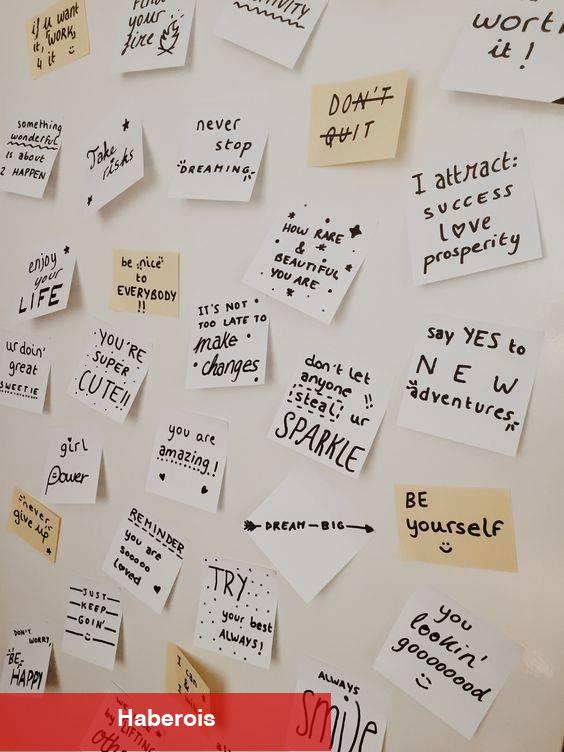 if u want
it, WORK
it :)
your
fire
worth
it !
DON'T
QUIT
something
wonderful
is about
2 HAPPEN
Take
risks
never
stop
"DREAMING"
I attract:
SUCCESS
LOVE
prosperity
HOW RARE
&
BEAUTIFUL
YOU ARE
enjoy
your
LIFE
be "nice"
to
EVERYBODY
!!
IT'S NOT
TOO LATE TO
make
changes
say YES to
NEW
adventures
ur doin'
great
SWEETIE
YOU'RE
SUPER
CUTE!!
don't let
anyone !!
steal ur
SPARKLE
girl
power
you are
amazing!
"never"
give up
REMINDER
you are
sooooo
loved
DREAM-BIG
BE
yourself
:)
JUST
KEEP
GOIN'
:)
TRY
your best
ALWAYS!
you
lookin'
gooooooood
:)
DON'T WORRY
"BE"
HAPPY
I can
&
ALWAYS
smile
LIFTING
Haberois